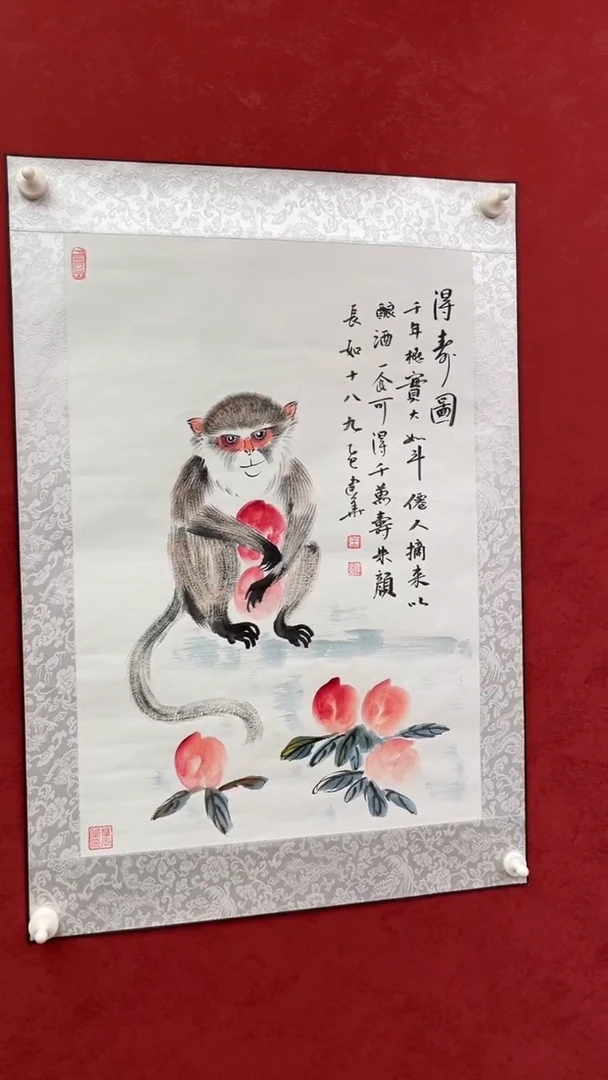 得寿圖
千年桃實大如斗僊人摘来以
釀酒一食可得千萬壽朱顔
長如十八九乙巳建華